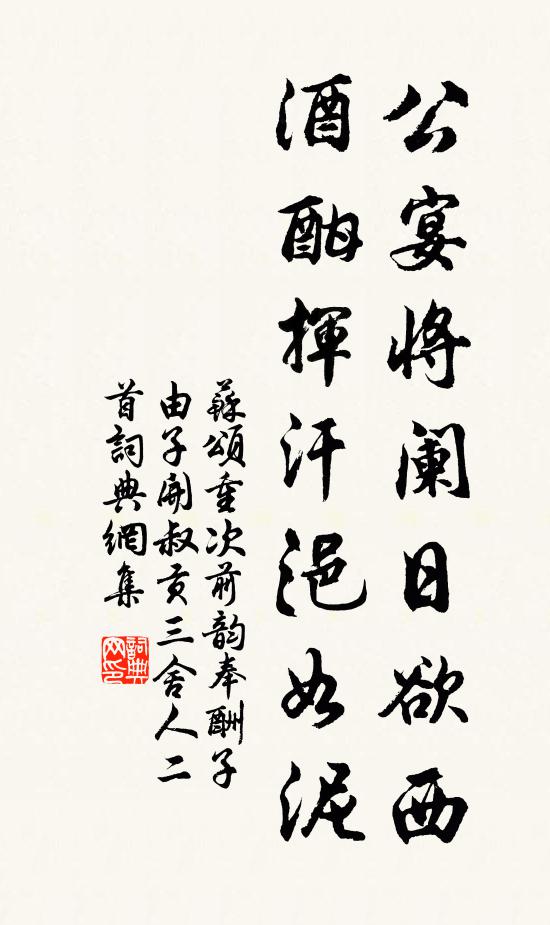 公宴将阑日欲西
酒酣揮汗浥如泥
蘇頌重次前韵奉酬子
由子開叔貢三舍人二
首詞典網集
詞典
网印